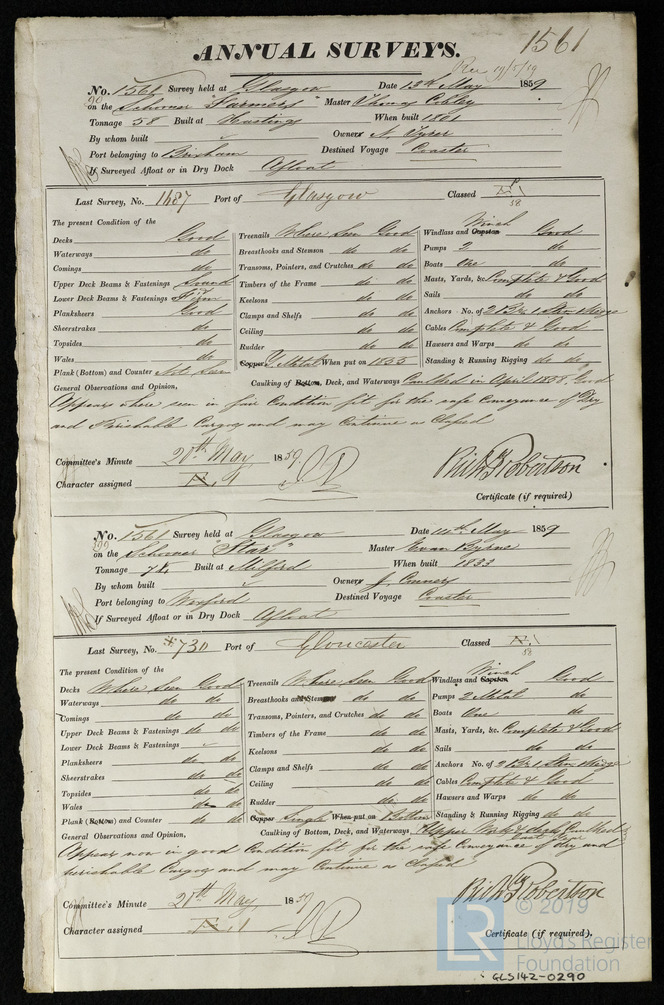 ANNUAL SURVEYS.
1561
Rec 19/5/59
No. 1561 Survey held at Glasgow Date 13th May 1859
on the Schooner "Farmers" Master Thomas Cobley
Tonnage 58 Built at Hastings When built 1801
By whom built Owners N. Tyser
Port belonging to Brixham Destined Voyage Coaster
If Surveyed Afloat or in Dry Dock Afloat
Last Survey, No. 1487 Port of Glasgow Classed Æ 1
58
The present Condition of the
Decks Good
Waterways do
Comings do
Upper Deck Beams & Fastenings Sound
Lower Deck Beams & Fastenings Firm
Planksheers Good
Sheerstrakes do
Topsides do
Wales do
Plank (Bottom) and Counter Not Seen
Treenails Where Seen Good
Breasthooks and Stemson do do
Transoms, Pointers, and Crutches do do
Timbers of the Frame do do
Keelsons do do
Clamps and Shelfs do do
Ceiling do do
Rudder do do
Copper Y Metal When put on 1855
Winch
Windlass and Capstan Good
Pumps 2 do
Boats One do
Masts, Yards, &c. Complete & Good
Sails do do
Anchors No. of 2 Br 1 Strm
Cables Complete & Good
Hawsers and Warps do do
Standing & Running Rigging do do
Caulking of Bottom, Deck, and Waterways Caulked in April 1858. Good
General Observations and Opinion,
Appears where seen in fair Condition fit for the safe Conveyance of Dry
and Perishable Cargoes and may Continue as Classed
Committee's Minute 20th May 1859
Character assigned Æ 1
Richd Robertson
Certificate (if required)
No. 1561 Survey held at Glasgow Date 14th May 1859
on the Schooner "Star" Master Evan Byrne
Tonnage 78 Built at Milford When built 1833
By whom built Owners J. Connery
Port belonging to Wexford Destined Voyage Coaster
If Surveyed Afloat or in Dry Dock Afloat
Last Survey, No. 730 Port of Gloucester Classed Æ 1
58
The present Condition of the
Decks Where Seen Good
Waterways do do
Comings do do
Upper Deck Beams & Fastenings do do
Lower Deck Beams & Fastenings
Planksheers do do
Sheerstrakes do do
Topsides do do
Wales do do
Plank (Bottom) and Counter do do
Treenails Where Seen Good
Breasthooks and Stemson do do
Transoms, Pointers, and Crutches do do
Timbers of the Frame do do
Keelsons do do
Clamps and Shelfs do do
Ceiling do do
Rudder do do
Copper Single When put on Bottom
Winch
Windlass and Capstan Good
Pumps 2 Metal do
Boats One do
Masts, Yards, &c. Complete & Good
Sails do do
Anchors No. of 2 Br 1 Strm
Cables Complete & Good
Hawsers and Warps do do
Standing & Running Rigging do do
Caulking of Bottom, Deck, and Waterways Upper Works & Deck Caulked
General Observations and Opinion,
Appears now in good Condition fit for the safe Conveyance of dry and
perishable Cargoes and may Continue as Classed
Committee's Minute 20th May 1859
Character assigned Æ 1
Richd Robertson
Certificate (if required).
LR © 2019
Lloyd's Register
Foundation
GLS142-0290